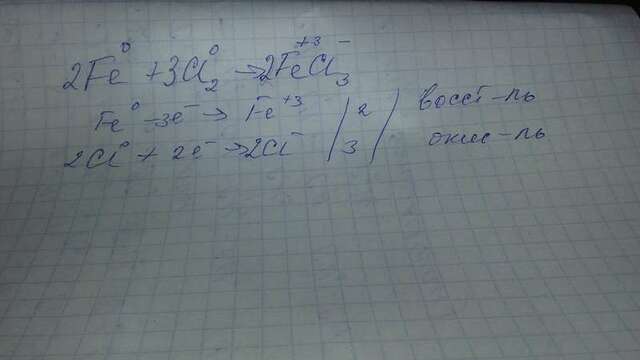 2Fe⁰ + 3Cl₂⁰ → 2Fe⁺³Cl₃⁻
Fe⁰ - 3e⁻ → Fe⁺³ | 2 | восст-ль
2Cl⁰ + 2e⁻ → 2Cl⁻ | 3 | окис-ль